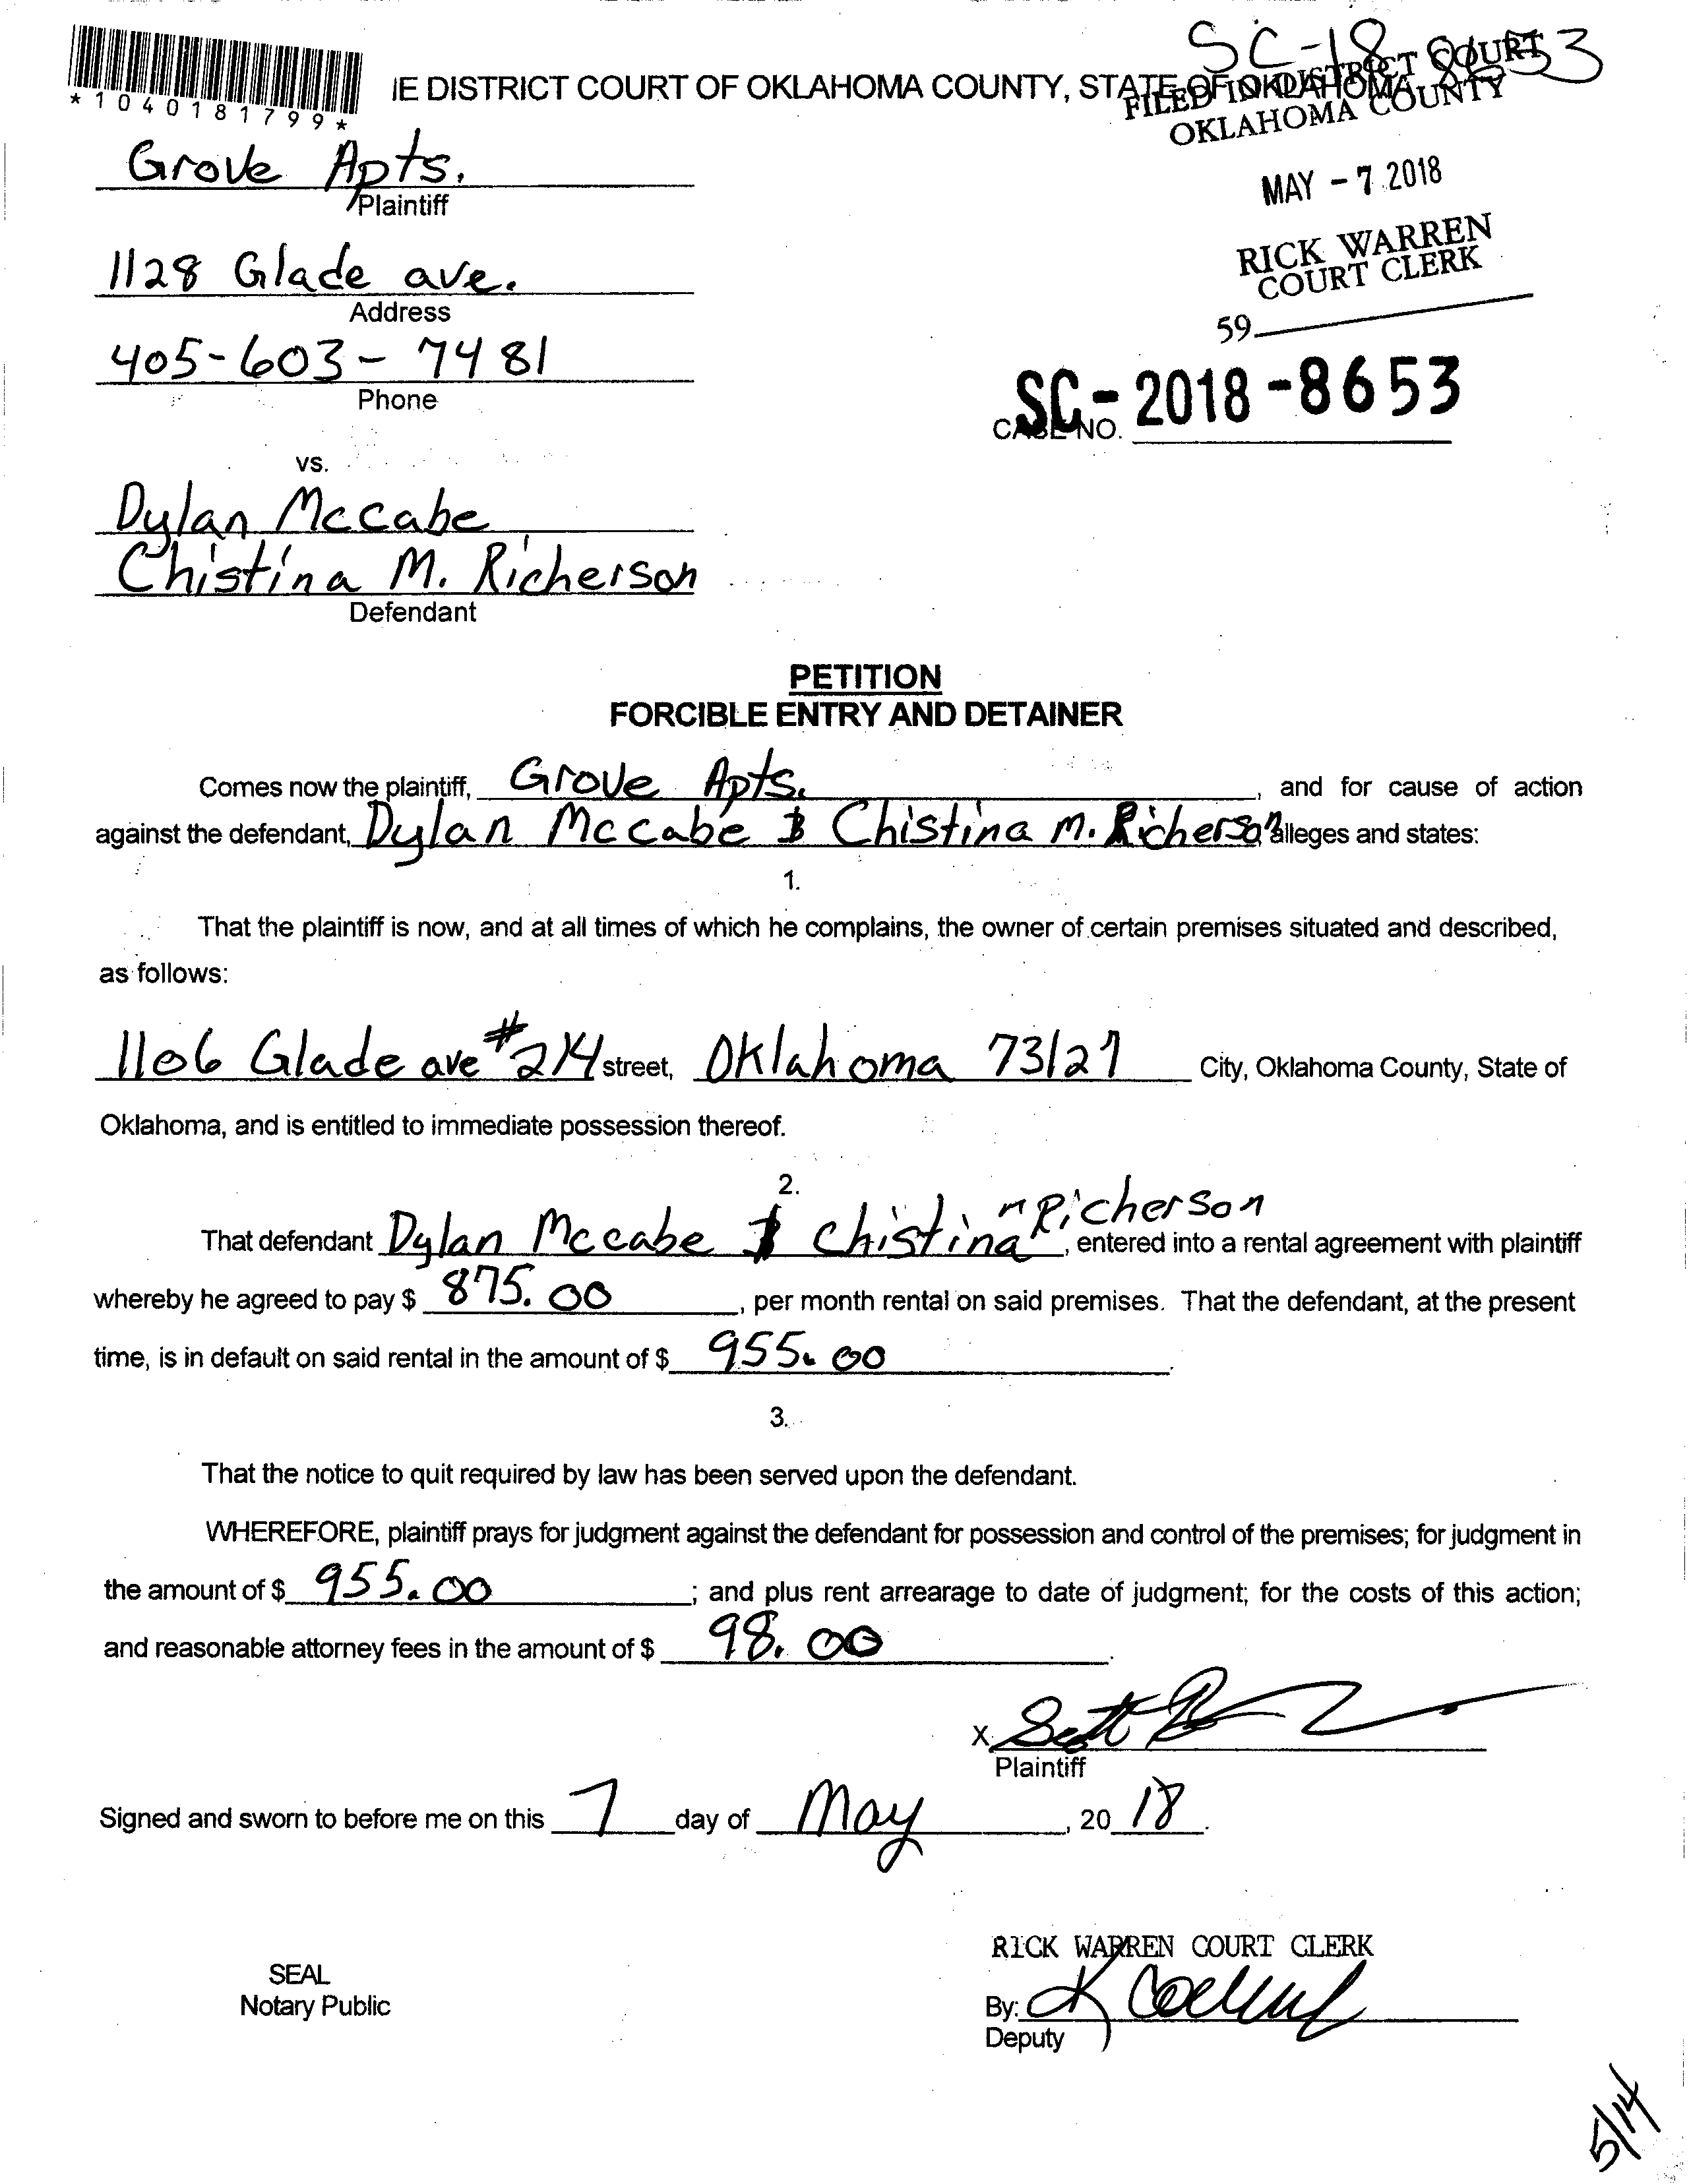 SC-18 8653
IE DISTRICT COURT OF OKLAHOMA COUNTY, STATE OF OKLAHOMA
*1040181799*
FILED IN DISTRICT COURT
OKLAHOMA COUNTY
MAY - 7 2018
RICK WARREN
COURT CLERK
59
Grove Apts.
Plaintiff
1128 Glade ave.
Address
405-603-7481
Phone
CASE NO. SC-2018-8653
vs.
Dylan Mccabe
Chistina M. Richerson
Defendant
PETITION
FORCIBLE ENTRY AND DETAINER
Comes now the plaintiff, Grove Apts. , and for cause of action
against the defendant, Dylan Mccabe & Chistina M. Richerson alleges and states:
1.
That the plaintiff is now, and at all times of which he complains, the owner of certain premises situated and described,
as follows:
1106 Glade ave #214 street, Oklahoma 73127 City, Oklahoma County, State of
Oklahoma, and is entitled to immediate possession thereof.
2.
That defendant Dylan Mccabe & Chistina M Richerson, entered into a rental agreement with plaintiff
whereby he agreed to pay $ 875.00 , per month rental on said premises. That the defendant, at the present
time, is in default on said rental in the amount of $ 955.00 .
3.
That the notice to quit required by law has been served upon the defendant.
WHEREFORE, plaintiff prays for judgment against the defendant for possession and control of the premises; for judgment in
the amount of $ 955.00 ; and plus rent arrearage to date of judgment; for the costs of this action;
and reasonable attorney fees in the amount of $ 98.00 .
X Scott
Plaintiff
Signed and sworn to before me on this 7 day of May , 20 18 .
RICK WARREN COURT CLERK
SEAL
Notary Public
By: K
Deputy
5/14